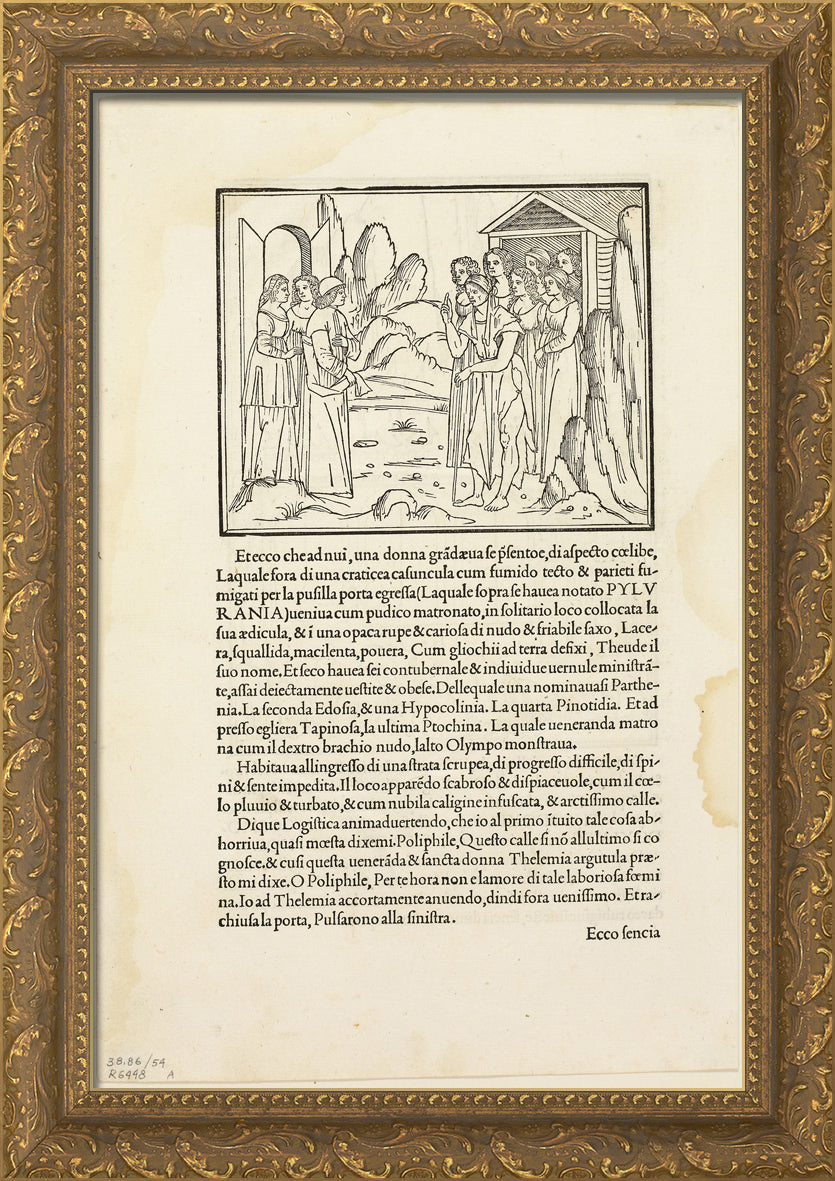 Et ecco che ad nui, una donna grãdæua se p̃sentoe, di aspecto cœlibe,
Laquale fora di una craticea casuncula cum fumido tecto & parieti fu-
migati per la pusilla porta egressa(Laquale sopra se hauea notato PYLV
RANIA)ueniua cum pudico matronato, in solitario loco collocata la
sua ædicula, & ĩ una opaca rupe & cariosa di nudo & friabile saxo, Lace-
ra, squallida, macilenta, pouera, Cum gliochii ad terra defixi, Theude il
suo nome. Et seco hauea sei contubernale & indiuidue uernule ministrã-
te, assai deiectamente uestite & obese. Dellequale una nominauasi Parthe-
nia. La seconda Edosia, & una Hypocolinia. La quarta Pinotidia. Et ad
presso egliera Tapinosa, la ultima Ptochina. La quale ueneranda matro
na cum il dextro brachio nudo, lalto Olympo monstraua.
Habitaua allingresso di una strata scrupea, di progresso difficile, di spi-
ni & sente impedita. Il loco apparẽdo scabroso & dispiaceuole, cum il cœ-
lo pluuio & turbato, & cum nubila caligine infuscata, & arctissimo calle.
Dique Logistica animaduertendo, che io al primo ĩtuito tale cosa ab-
horriua, quasi mœsta dixemi. Poliphile, Questo calle si nõ allultimo si co
gnosce. & cusi questa uenerãda & sancta donna Thelemia argutula præ-
sto mi dixe. O Poliphile, Per te hora non e lamore di tale laboriosa fœmi
na. Io ad Thelemia accortamente anuendo, dindi fora uenissimo. Et ra-
chiusa la porta, Pulsarono alla sinistra.
Ecco sencia
38.86/54
R6448 A